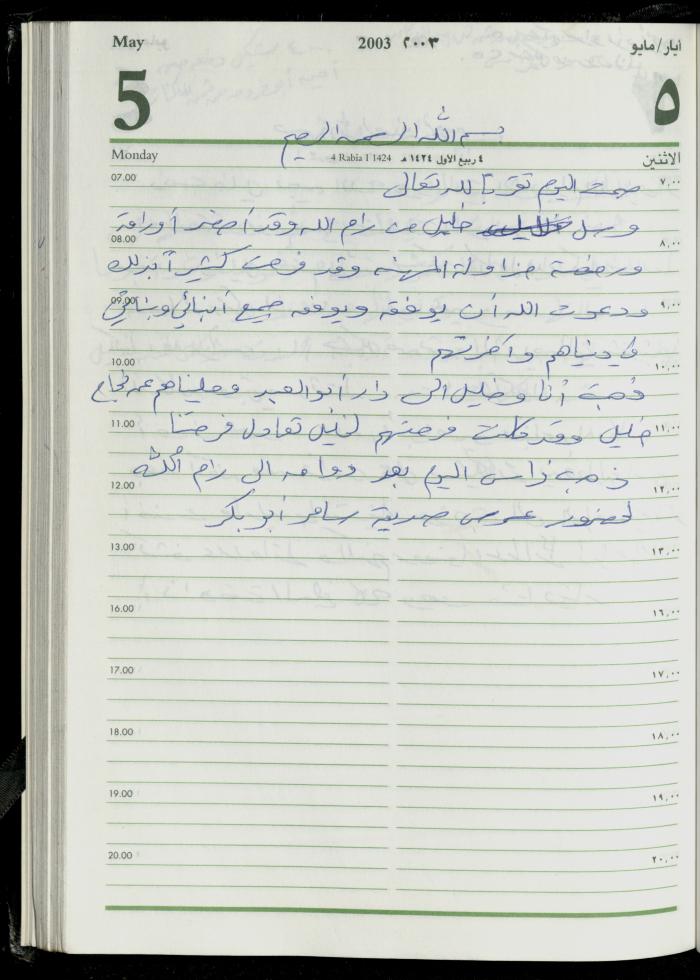 May 2003 ٢٠٠٣ ايار/مايو
5 ٥
بسم الله الرحمن الرحيم
Monday 4 Rabia I 1424 ٤ ربيع الأول ١٤٢٤ هـ الاثنين
07.00 صمت اليوم تقربا لله تعالى ٧,٠٠
وصل خليل من رام الله وقد أحضر أوراقه
08.00 ٨,٠٠
ورخصة مزاولة المهنة وقد فرحت كثيرا بذلك
09.00 ودعوت الله أن يوفقه ويوفق جميع أبنائي وبناتي ٩,٠٠
في دنياهم وآخرتهم
10.00 ١٠,٠٠
ذهبت أنا وخليل الى دار أبو العبد
11.00 خليل وقد كانت فرحتهم لخليل تعادل فرحتنا ١١,٠٠
ذهب فراس اليوم بعد دوامه الى رام الله
12.00 ١٢,٠٠
لحضور عرس صديقه سامر أبو بكر
13.00 ١٣,٠٠
16.00 ١٦,٠٠
17.00 ١٧,٠٠
18.00 ١٨,٠٠
19.00 ١٩,٠٠
20.00 ٢٠,٠٠